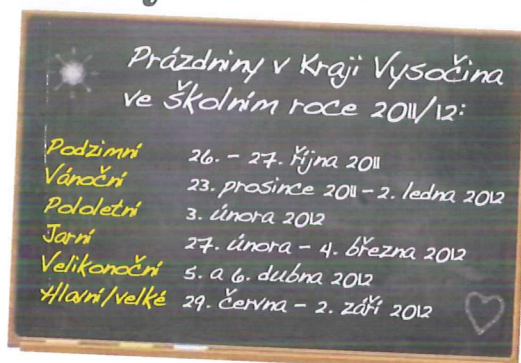 Prázdniny v Kraji Vysočina
ve školním roce 2011/12:
Podzimní 26. – 27. října 2011
Vánoční 23. prosince 2011 – 2. ledna 2012
Pololetní 3. února 2012
Jarní 27. února – 4. března 2012
Velikonoční 5. a 6. dubna 2012
Hlavní/velké 29. června – 2. září 2012